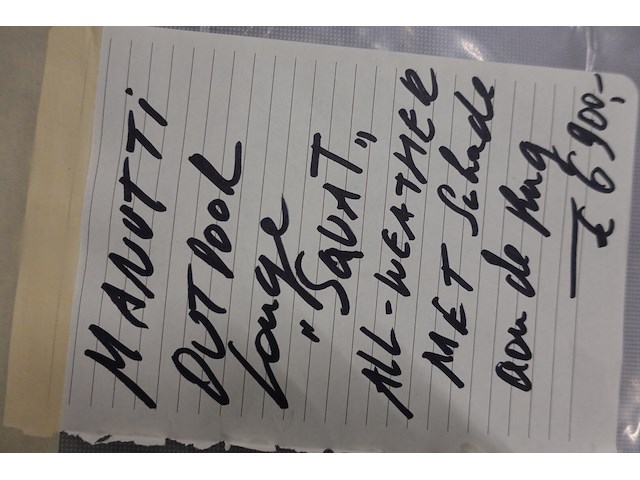 MANUTTI
OUTDOOR
Longe
"SQUAT"
ALL-WEATHER
MET Schade
aan de rug
€ 6900,-